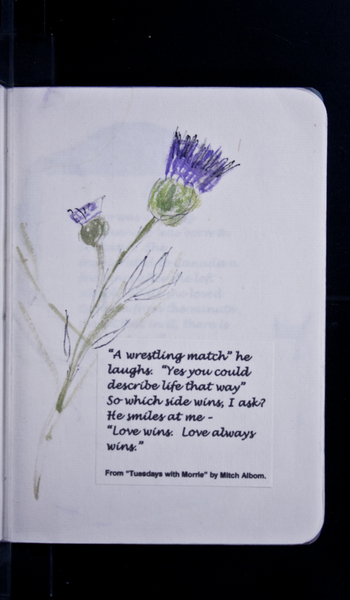 "A wrestling match" he
laughs. "Yes you could
describe life that way"
So which side wins, I ask?
He smiles at me -
"Love wins. Love always
wins."
From "Tuesdays with Morrie" by Mitch Albom.